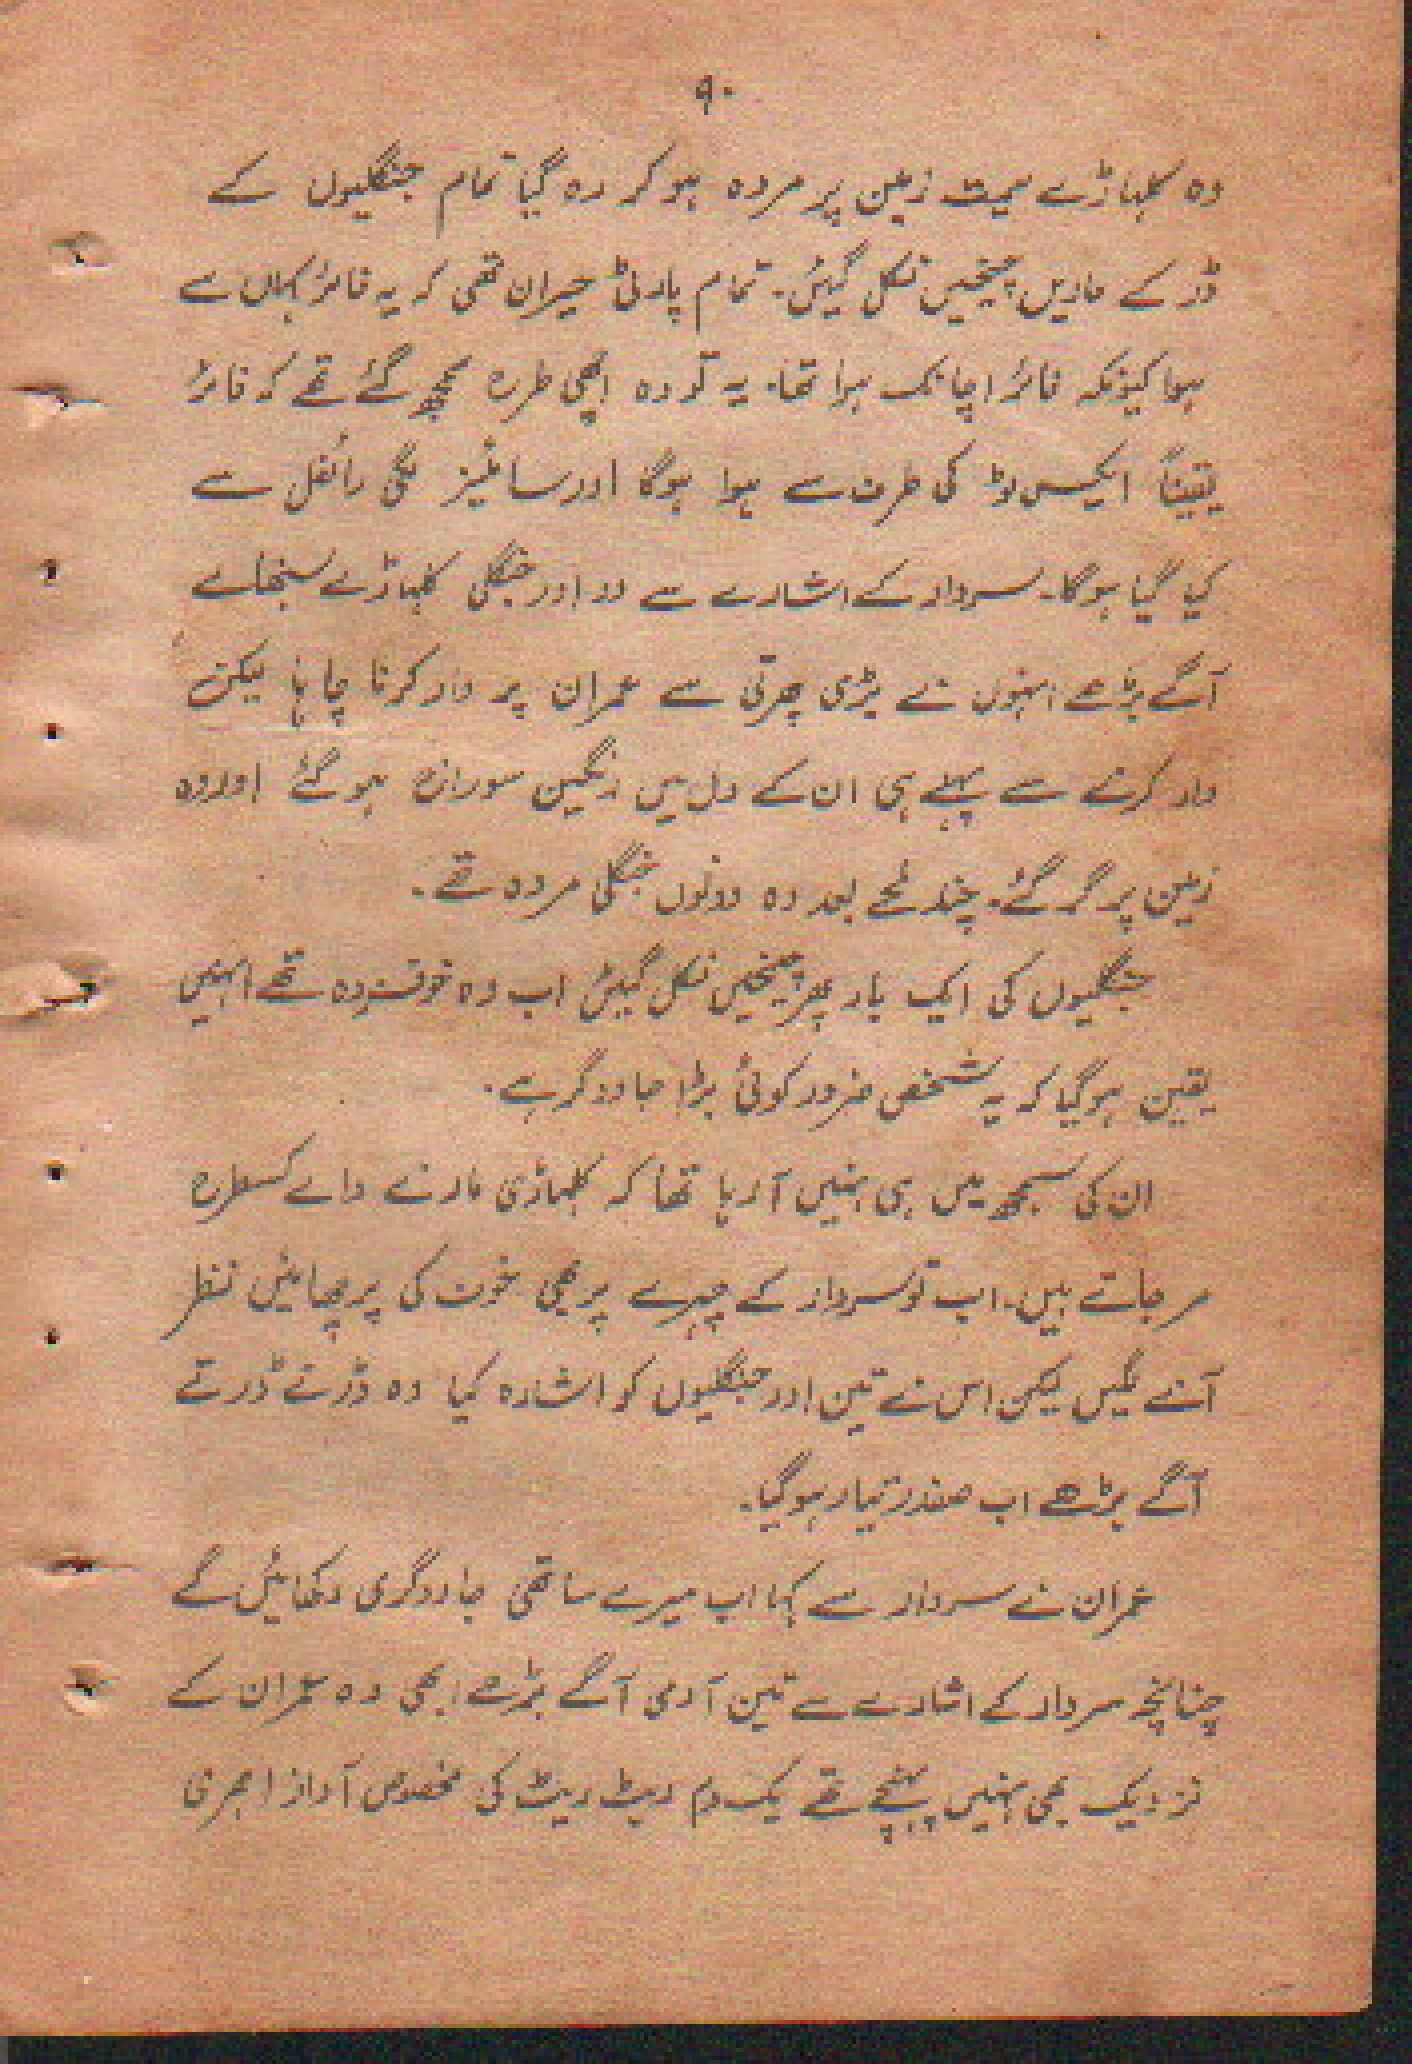 ۹۰
وہ کلہاڑے سمیت زمین پر مردہ ہو کر رہ گیا تمام جنگلیوں کے
ڈر کے مارے چیخیں نکل گیئں۔ تمام پارٹی حیران تھی کہ یہ فائر کہاں سے
ہوا کیونکہ فائر اچانک ہوا تھا۔ یہ تو وہ اچھی طرح سمجھ گئے تھے کہ فائر
یقیناً ایکس ٹو کی طرف سے ہوا ہوگا اور سائلنسر لگی رائفل سے
کیا گیا ہوگا۔ سردار کے اشارے سے دو اور جنگلی کلہاڑے سنبھالے
آگے بڑھے انہوں نے بڑی پھرتی سے عمران پر وار کرنا چاہا لیکن
وار کرنے سے پہلے ہی ان کے دل میں رنگین سوراخ ہو گئے اور وہ
زمین پر گر گئے۔ چند لمحے بعد وہ دونوں جنگلی مردہ تھے۔
جنگلیوں کی ایک بار پھر چیخیں نکل گیئں اب وہ خوفزدہ تھے انہیں
یقین ہوگیا کہ یہ شخص ضرور کوئی بڑا جادوگر ہے۔
ان کی سمجھ میں ہی نہیں آ رہا تھا کہ کلہاڑی مارنے والے کسطرح
مر جاتے ہیں۔ اب تو سردار کے چہرے پر بھی خوف کی پرچھایئں نظر
آنے لگیں لیکن اس نے تین اور جنگلیوں کو اشارہ کیا وہ ڈرتے ڈرتے
آگے بڑھے اب صفدر تیار ہوگیا۔
عمران نے سردار سے کہا اب میرے ساتھی جادوگری دکھایئں گے
چنانچہ سردار کے اشارے سے تین آدمی آگے بڑھے ابھی وہ عمران کے
نزدیک بھی نہیں پہنچے تھے یک دم ریٹ ریٹ کی مخصوص آواز ابھری